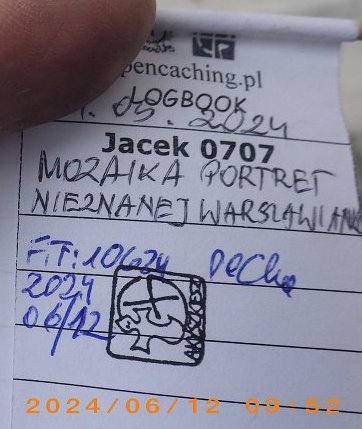 opencaching.pl
LOGBOOK
.05.2024
Jacek 0707
MOZAIKA PORTRET
NIEZNANEJ WARSZAWIANK
F.T: 10G24 Decha
2024
06/12
2024/06/12 09:52